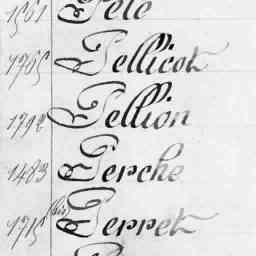 1561 Pele
1765 Pellicot
1792 Pellion
1483 Perche
1715 (bis) Perret